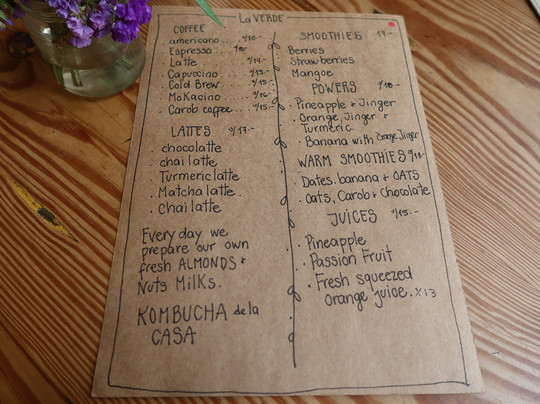 La VERDE
COFFEE
americano.... s/10.-
Espresso.... s/8.-
Latte ...... s/14.-
Capuccino .... s/15.-
Cold Brew .... s/15.-
Mokacino .... s/16.-
Carob coffee... s/15.-
LATTES s/17.-
. chocolatte
. chai latte
. Turmeric latte
. Matcha latte.
. Chai latte
Every day we
prepare our own
fresh ALMONDS &
Nuts Milks.
KOMBUCHA de la
CASA
SMOOTHIES. 14.-
Berries
Strawberries
Mangoe
POWERS
. Pineapple & Jinger
. Orange, Jinger &
Turmeric
. Banana with Orange Jinger
WARM SMOOTHIES
. Dates. banana & OATS
. Oats, Carob & Chocolate
JUICES s/15.-
. Pineapple
. Passion Fruit
. Fresh squeezed
orange juice. s/13